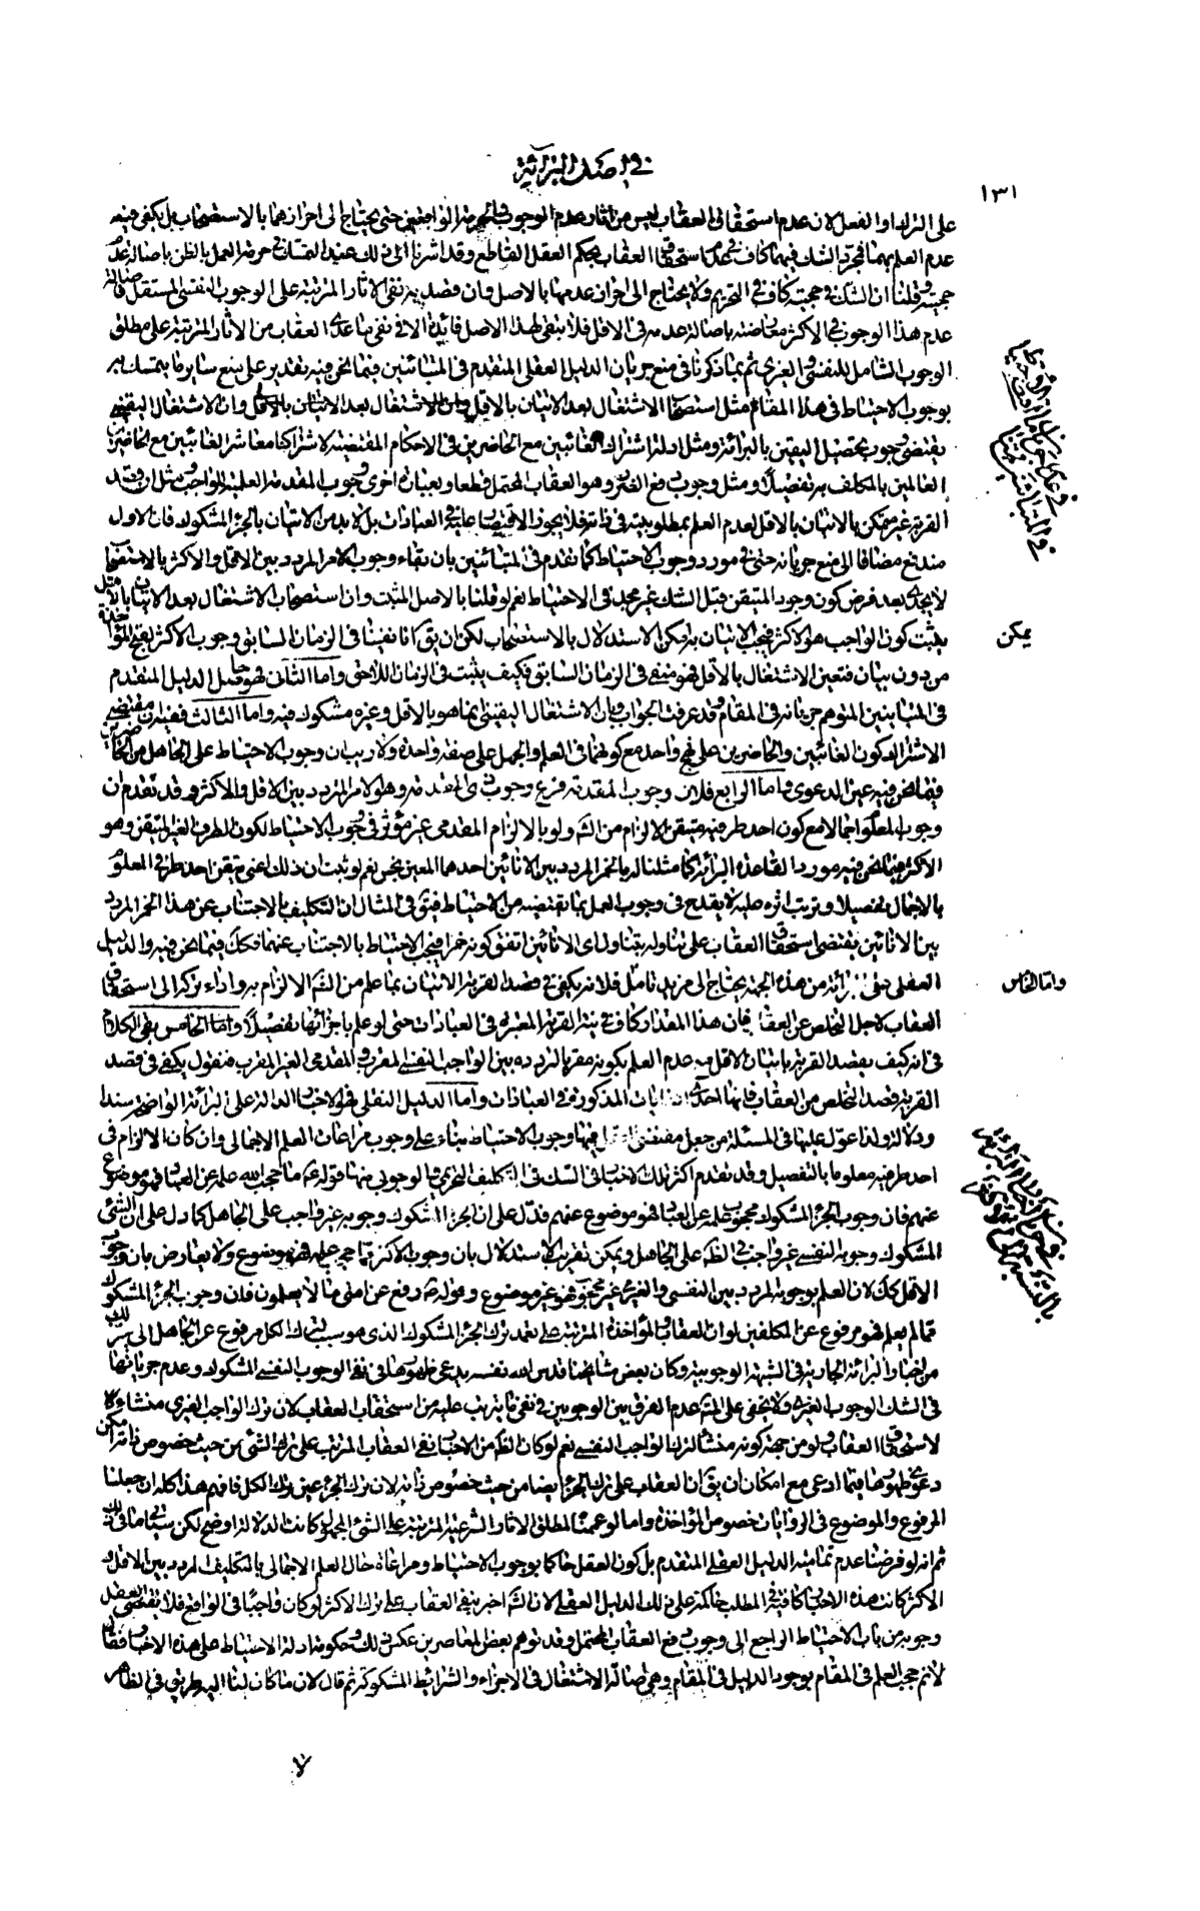 في اصل البرائة
١٣١
على الترك او الفعل لان عدم استحقاق العقاب ليس من اثار عدم الوجوب والحرمة الواقعيين حتى يحتاج الى احرازهما بالاستصحاب بل يكفي فيه
عدم العلم بهما فمجرد الشك فيهما كاف في عدم استحقاق العقاب بحكم العقل القاطع وقد اشرنا الى ذلك عند التمسك في حرمة العمل بالظن باصالة عدم
حجيته وقلنا ان الشك في حجيته كاف في التحريم ولا يحتاج الى احراز عدمها بالاصل وان قصد به نفى الاثار المترتبة على الوجوب النفسي المستقل فاصالة
عدم هذا الوجوب في الاكثر معارضة باصالة عدمه في الاقل فلا تبقى لهذا الاصل فائدة الا في نفى ما عدا العقاب من الاثار المترتبة على مطلق
الوجوب الشامل للنفسي والغيري ثم بما ذكرنا في منع جريان الدليل العقلي المتقدم في المتبائنين فيما نحن فيه تقدير على منع ساير ما يتمسك به
لوجوب الاحتياط في هذا المقام مثل استصحاب الاشتغال بعد الاتيان بالاقل وان الاشتغال اليقيني
يقتضي وجوب تحصيل اليقين بالبرائة ومثل ادلة اشتراك الغائبين مع الحاضرين في الاحكام المقتضية لاشتراكنا معاشر الغائبين مع الحاضرين
العالمين بالمكلف به تفصيلا ومثل وجوب دفع الضرر وهو العقاب المحتمل قطعا وبعبارة اخرى وجوب المقدمة العلمية للواجب ومثل ان قصد
القربة غير ممكن بالاتيان بالاقل لعدم العلم بمطلوبيته في ذاته فلا يجوز الاقتصار عليه في العبادات بل لا بد من الاتيان بالجزء المشكوك فان الاول
مندفع مضافا الى منع جريانه حتى في مورد وجوب الاحتياط كما تقدم في المتبائنين بان بقاء وجوب الامر المردد بين الاقل والاكثر بالاستصحاب
لا يجدي بعد فرض كون وجود المتيقن قبل الشك غير مجد في الاحتياط نعم لو قلنا بالاصل المثبت وان استصحاب الاشتغال بعد الاتيان بالاقل
يثبت كون الواجب هو الاكثر فيجب الاتيان به يمكن الاستدلال بالاستصحاب لكن ان يق انا نفينا في الزمان السابق وجوب الاكثر لقبح المؤاخذة
من دون بيان فتعين الاشتغال بالاقل فهو منفي في الزمان السابق فكيف يثبت في الزمان اللاحق واما الثاني فهو حاصل الدليل المتقدم
في المتبائنين المتوهم جريانه في المقام وقد عرفت الجواب وان الاشتغال اليقيني انما هو بالاقل وغيره مشكوك فيه واما الثالث ففيه ان مقتضى
الاشتراك كون الغائبين والحاضرين على نهج واحد مع كونهما في العلم والجهل على صفة واحدة ولا ريب ان وجوب الاحتياط على الجاهل من الحاضرين
فيما نحن فيه عين الدعوى واما الرابع فلان وجوب المقدمة فرع وجوب ذي المقدمة وهو الامر المردد بين الاقل والاكثر وقد تقدم ان
وجوب المعلوم اجمالا مع كون احد طرفيه متيقن الالزام من الش ولو بالالزام المقدمي غير مؤثر في وجوب الاحتياط لكون الطرف الغير المتيقن وهو
الاكثر فيما نحن فيه موردا لقاعدة البرائة كما مثلنا له بالخمر المردد بين الانائين احدهما المعين نجس نعم لو ثبت ان ذلك اعني تيقن احد طرفي المعلوم
بالاجمال تفصيلا وترتب اثره عليه لا يقدح في وجوب العمل بما يقتضيه من الاحتياط فيق في المثال ان التكليف بالاجتناب عن هذا الخمر المردد
بين الانائين يقتضي استحقاق العقاب على تناوله بتناول اي الانائين اتفق كونه خمرا فيجب الاحتياط بالاجتناب عنهما فكك فيما نحن فيه والدليل
العقلي على البرائة من هذه الجهة يحتاج الى مزيد تامل
فلانه يكفي في قصد القربة الاتيان بما علم من الش الالزام به واداء تركه الى استحقاق
العقاب لاجل التخلص عن العقاب فان هذا المقدار كاف في نية القربة المعتبرة في العبادات حتى لو علم باجزائها تفصيلا واما الخامس بقي الكلام
في انه كيف يقصد القربة باتيان الاقل مع عدم العلم بكونه مقربا لتردده بين الواجب النفسي المقرب والمقدمي الغير المقرب فنقول يكفي في قصد
القربة قصد التخلص من العقاب فانها احدى الغايات المذكورة في العبادات واما الدليل النقلي فهو الاخبار الدالة على البرائة الواضحة سندا
ودلالة ولذا عول عليها في المسئلة من جعل مقتضى العقل فيها وجوب الاحتياط بناء على وجوب مراعات العلم الاجمالي وان كان الالزام في
احد طرفيه معلوما بالتفصيل وقد تقدم اكثر تلك الاخبار في الشك في التكليف التحريمي والوجوبي منها قوله ع ما حجب الله علمه عن العباد فهو موضوع
عنهم فان وجوب الجزء المشكوك محجوب علمه عن العباد فهو موضوع عنهم فدل على ان الجزء المشكوك وجوبه غير واجب على الجاهل كما دل على ان الشئ
المشكوك وجوبه النفسي غير واجب في الظ على الجاهل ويمكن تقريب الاستدلال بان وجوب الاكثر مما حجب علمه فهو موضوع ولا يعارض بان وجوب
الاقل كك لان العلم بوجوبه المردد بين النفسي والغيري غير محجوب فهو غير موضوع وقوله ص رفع عن امتي ما لا يعلمون فان وجوب الجزء المشكوك
مما لم يعلم فهو مرفوع عن المكلفين او ان العقاب والمؤاخذة المترتبة على تعمد ترك الجزء المشكوك الذي هو سبب لترك الكل مرفوع عن الجاهل الى غير ذلك
من اخبار البرائة الجارية في الشبهة الوجوبية وكان بعض مشايخنا قدس الله نفسه يدعي ظهورها في نفى الوجوب النفسي المشكوك وعدم جريانها
في الشك الوجوب الغيري ولا يخفى على المت عدم الفرق بين الوجوبين في نفى ما يترتب عليه من استحقاق العقاب لان ترك الواجب الغيري منشاء
لاستحقاق العقاب ولو من جهة كونه منشأ لترك الواجب النفسي نعم لو كان الظ من الاخبار نفى العقاب المترتب على ترك الشئ من حيث خصوص ذاته امكن
دعوى ظهورها فيما ادعى مع امكان ان يق ان العقاب على ترك الجزء ايضا من حيث خصوص ذاته لان ترك الجزء عين ترك الكل فافهم هذا كله ان جعلنا
المرفوع والموضوع في الروايات خصوص المؤاخذة واما لو عممناه لمطلق الاثار الشرعية المترتبة على الشئ المجهول كانت الدلالة اوضح لكن سيأتي ما في ذلك
ثم انه لو فرضنا عدم تمامية الدليل العقلي المتقدم بل كون العقل حاكما بوجوب الاحتياط ومراعاة حال العلم الاجمالي بالتكليف المردد بين الاقل و
الاكثر كانت هذه الاخبار كافية في المطلب حاكمة على ذلك الدليل العقلي لان الش اخبر بنفى العقاب على ترك الاكثر لو كان واجبا في الواقع فلا يقتضي العقل
وجوبه من باب الاحتياط الراجع الى وجوب دفع العقاب المحتمل وقد توهم بعض المعاصرين عكس ذلك وحكومة ادلة الاحتياط على هذه الاخبار فقال
لا نم حجب العلم في المقام لوجود الدليل في المقام وهي اصالة الاشتغال في الاجزاء والشرائط المشكوكة ثم قال لان ما كان لنا اليه طريق في الظاهر
لا
يمكن
واما الخامس